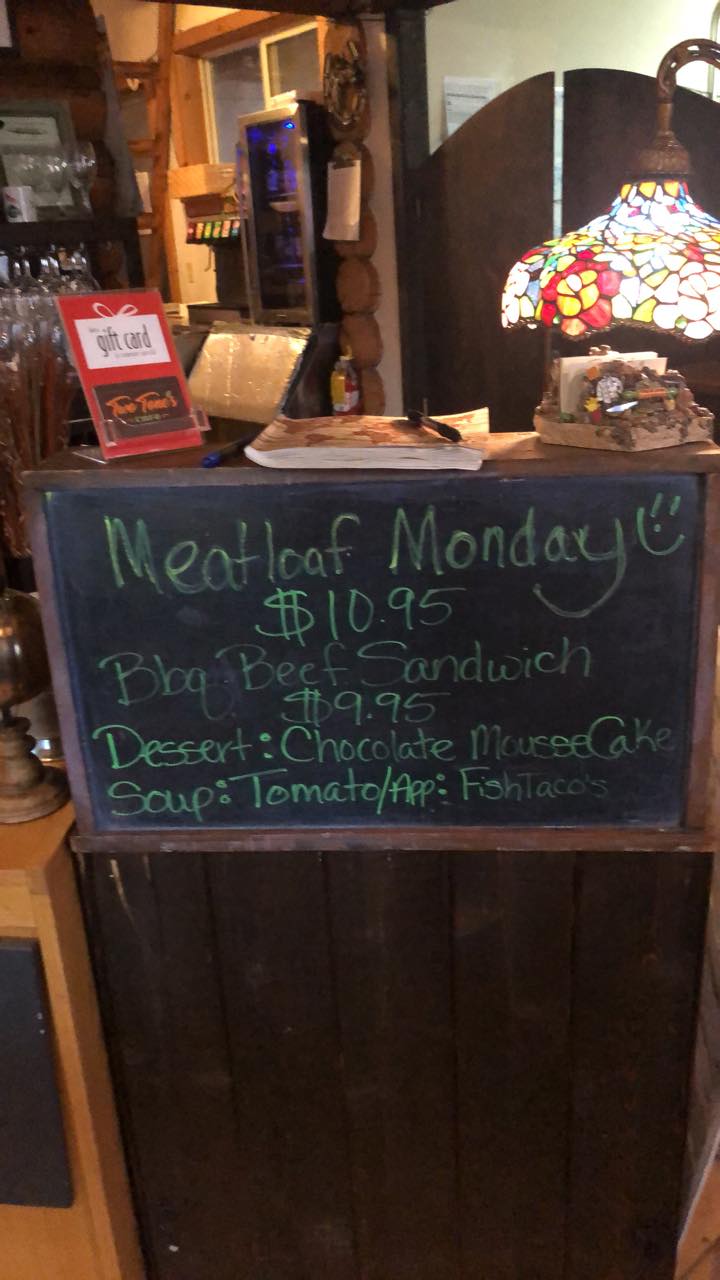 gift card
Meatloaf Monday
$10.95
Bbq Beef Sandwich
$9.95
Dessert: Chocolate Mousse Cake
Soup: Tomato/App: Fish Taco's